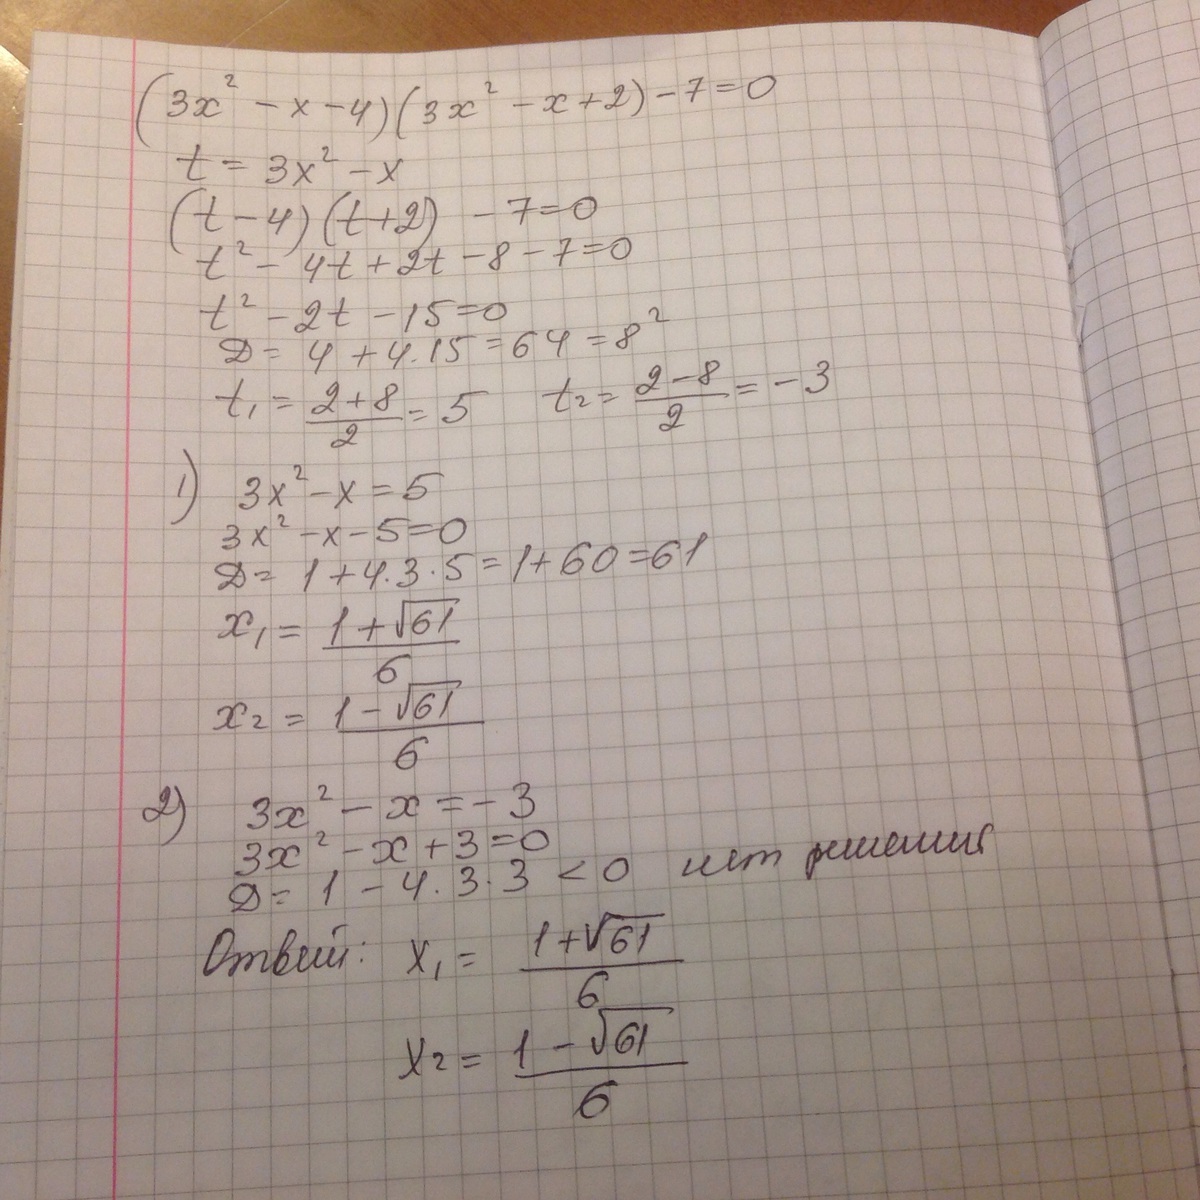 (3x² - x - 4)(3x² - x + 2) - 7 = 0
t = 3x² - x
(t - 4)(t + 2) - 7 = 0
t² - 4t + 2t - 8 - 7 = 0
t² - 2t - 15 = 0
D = 4 + 4·15 = 64 = 8²
t₁ = (2 + 8)/2 = 5   t₂ = (2 - 8)/2 = -3
1) 3x² - x = 5
3x² - x - 5 = 0
D = 1 + 4·3·5 = 1 + 60 = 61
x₁ = (1 + √61)/6
x₂ = (1 - √61)/6
2) 3x² - x = -3
3x² - x + 3 = 0
D = 1 - 4·3·3 < 0 нет решения
Ответ: x₁ = (1 + √61)/6
x₂ = (1 - √61)/6